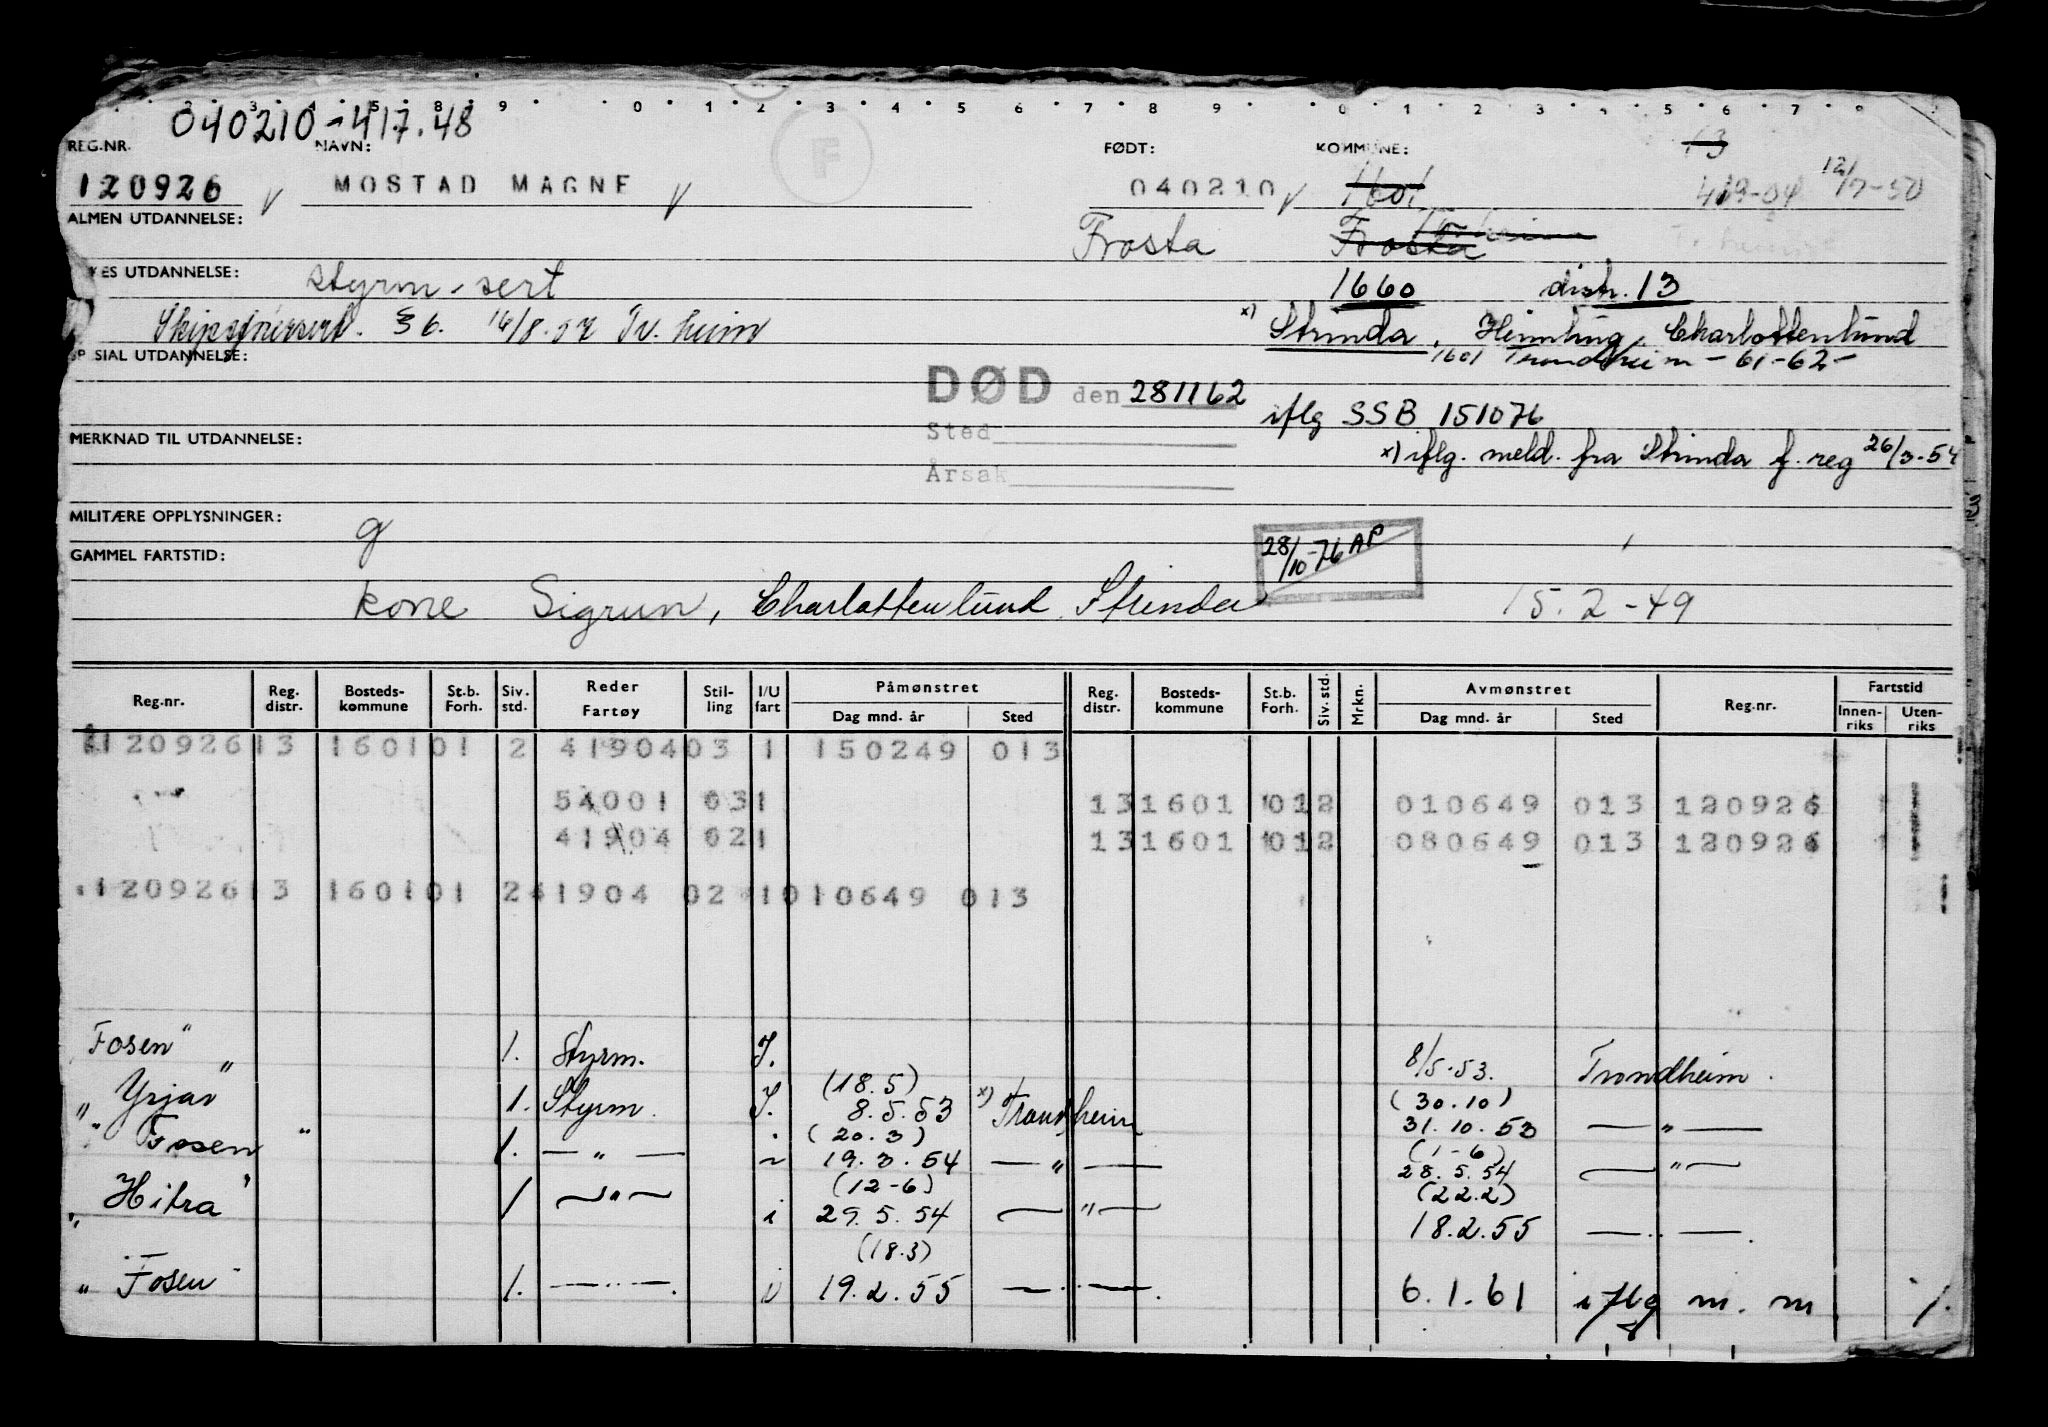 2 3 4 5 8 9 0 1 2 3 4 5 6 7 8 9 0 1 2 3 4 5 6 7
040210-417.48
REG.NR. NAVN: FØDT: KOMMUNE: 13
120926 MOSTAD MAGNE 040210 1601 419-04 12/7-50
ALMEN UTDANNELSE: Frosta Frosta Tr.heim
KES UTDANNELSE: styrm-sert 1660 distr. 13
§ 6. 16/8.57 Tr.heim x) Strinda, Charlottenlund
SP SIAL UTDANNELSE: 1601 Trondheim - 61-62-
DØD den 281162 iflg SSB 151076
Sted
MERKNAD TIL UTDANNELSE: x) iflg. meld. fra Strinda f.reg 26/3-54
Årsak
MILITÆRE OPPLYSNINGER: g
GAMMEL FARTSTID: 28/10-76 AP
kone Sigrun, Charlottenlund, Strinda 15.2-49
Reg.nr. Reg. distr. Bosteds-kommune St.b. Forh. Siv. std. Reder Fartøy Stil-ling I/U fart Påmønstret Dag mnd. år Sted Reg. distr. Bosteds-kommune St.b. Forh. Siv. std. Mrkn. Avmønstret Dag mnd. år Sted Reg.nr. Fartstid Innen-riks Uten-riks
120926 13 1601 01 2 41904 03 1 150249 013
54001 03 1 13 1601 01 2 010649 013 120926
41904 02 1 13 1601 01 2 080649 013 120926
120926 13 1601 01 2 41904 02 1 010649 013
Fosen" 1. Styrm. I. 8/5.53. Trondheim.
(18.5) (30.10)
"Yrjar" 1. Styrm. I. 8.5.53 x) Trondheim 31.10.53 — " —
(20.3) (1-6)
"Fosen" 1. — " — 19.3.54 — " — 28.5.54 — " —
(12-6) (22.2)
"Hitra" 1 — " — i 29.5.54 — " — 18.2.55 — " —.
(18.3)
"Fosen" 1. — " —. i 19.2.55 — " —. 6.1.61 iflg m.m 1.